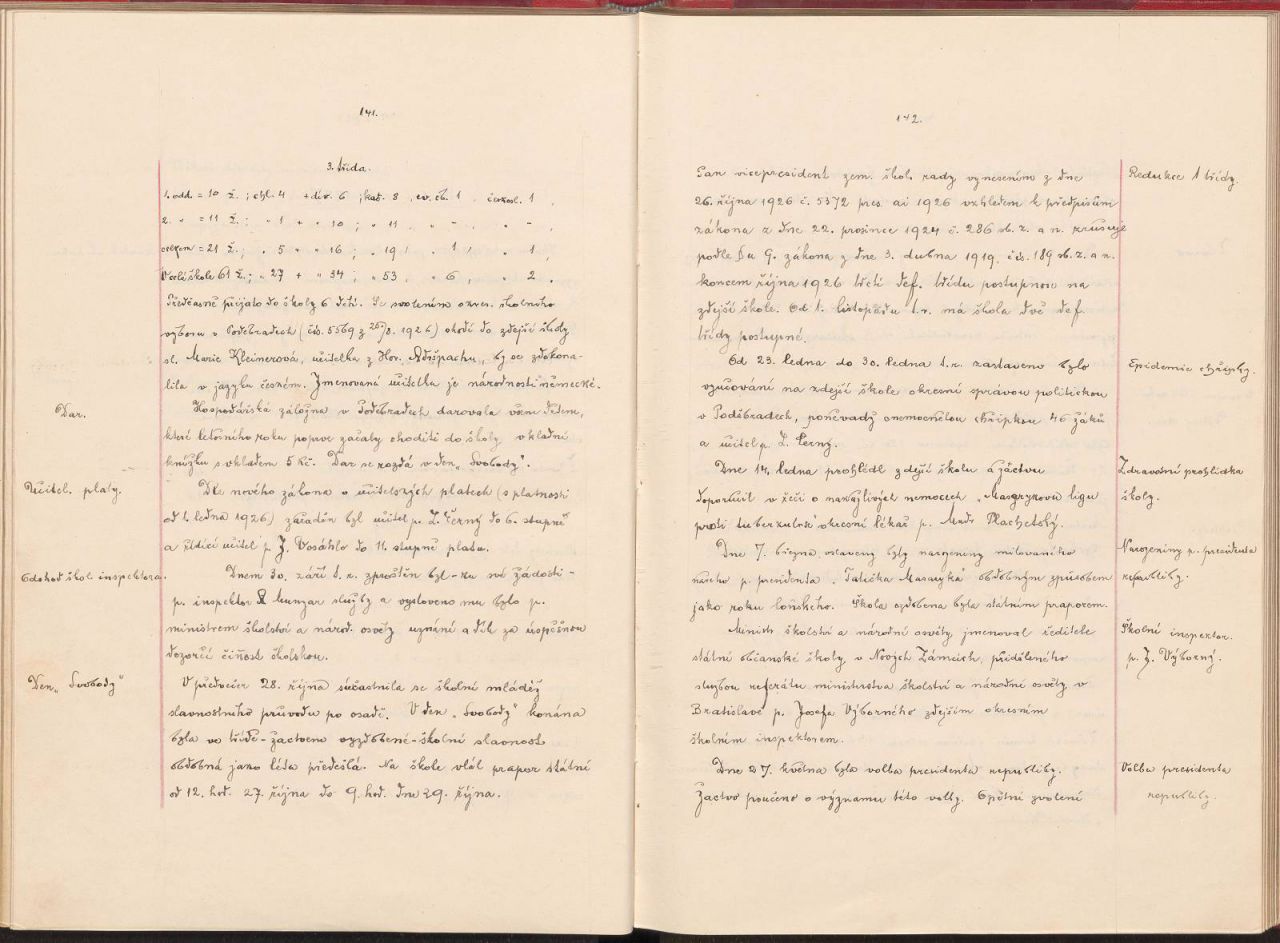 141.
3. třída.
1. odd. = 10 ž. ; chl. 4 + dív. 6 ; kat. 8 , ev. čb. 1 , českosl. 1 ,
2. " = 11 ž. ; " 1 + " 10 ; " 11 , " - , " - ,
celkem = 21 ž. ; " 5 + " 16 ; " 19 , " 1 , " 1 ,
V celé škole 61 ž. ; " 27 + " 34 ; " 53 , " 6 , " 2 .
Předčasně přijato do školy 6 dětí. Se svolením okres. školního
výboru v Poděbradech (čís. 5569 z 26/8. 1926) chodí do zdejší školy
sl. Marie Kleinerová, učitelka z Hor. Adršpachu, by se zdokona-
lila v jazyku českém. Jmenovaná učitelka je národnosti německé.
Dar.
Hospodářská záložna v Poděbradech darovala všem dětem,
které letošního roku poprve začaly choditi do školy vkladní
knížku s vkladem 5 Kč. Dar se rozdá v den „Svobody".
Učitel. platy.
Dle nového zákona o učitelských platech (s platností
od 1. ledna 1926) zařaděn byl učitel p. L. Černý do 6. stupně
a řídící učitel p. J. Vosáhlo do 11. stupně platu.
Odchod škol. inspektora.
Dnem 30. září t. r. zproštěn byl - ku své žádosti -
p. inspektor Munzar služby a vysloveno mu bylo p.
ministrem školství a národ. osvěty uznání a dík za úspěšnou
dozorčí činost školskou.
Den „Svobody"
V předvečer 28. října súčastnila se školní mládež
slavnostního průvodu po osadě. V den „Svobody" konána
byla ve třídě - žactvem vyzdobené - školní slavnost
obdobná jako léta předešlá. Na škole vlál prapor státní
od 12. hod. 27. října do 9. hod. dne 29. října.
142.
Pan vicepresident zem. škol. rady vynesením z dne
Redukce 1 třídy.
26. října 1926 č. 5372 pres. ai 1926 vzhledem k předpisům
zákona z dne 22. prosince 1924 č. 286 sb. z. a n. zrušuje
podle §u 9. zákona z dne 3. dubna 1919, čís. 189 sb. z. a n.
koncem října 1926 třetí def. třídu postupnou na
zdejší škole. Od 1. listopadu t. r. má škola dvě def.
třídy postupné.
Od 23. ledna do 30. ledna t. r. zastaveno bylo
Epidemie chřipky.
vyučování na zdejší škole okresní správou politickou
v Poděbradech, poněvadž onemocnělou chřipkou 46 žáků
a učitel p. L. Černý.
Dne 14. ledna prohlédl zdejší školu a žactvu
Zdravotní prohlídka
doporučil v řeči o nakažlivých nemocech „Masarykovu ligu
školy.
proti tuberkulose" okresní lékař p. Mudr Plachetský.
Dne 7. března oslaveny byly narozeniny milovaného
Narozeniny p. presidenta
našeho p. presidenta „Tatíčka Masaryka" obdobným způsobem
republiky.
jako roku loňského. Škola ozdobena byla státním praporem.
Ministr školství a národní osvěty jmenoval ředitele
Školní inspektor.
státní občanské školy v Nových Zámcích, přiděleného
p. J. Výborný.
službou referátu ministerstva školství a národní osvěty v
Bratislavě p. Josefa Výborného zdejším okresním
školním inspektorem.
Dne 27. května byla volba presidenta republiky.
Volba presidenta
Žactvo poučeno o významu této volby. Opětné zvolení
republiky.